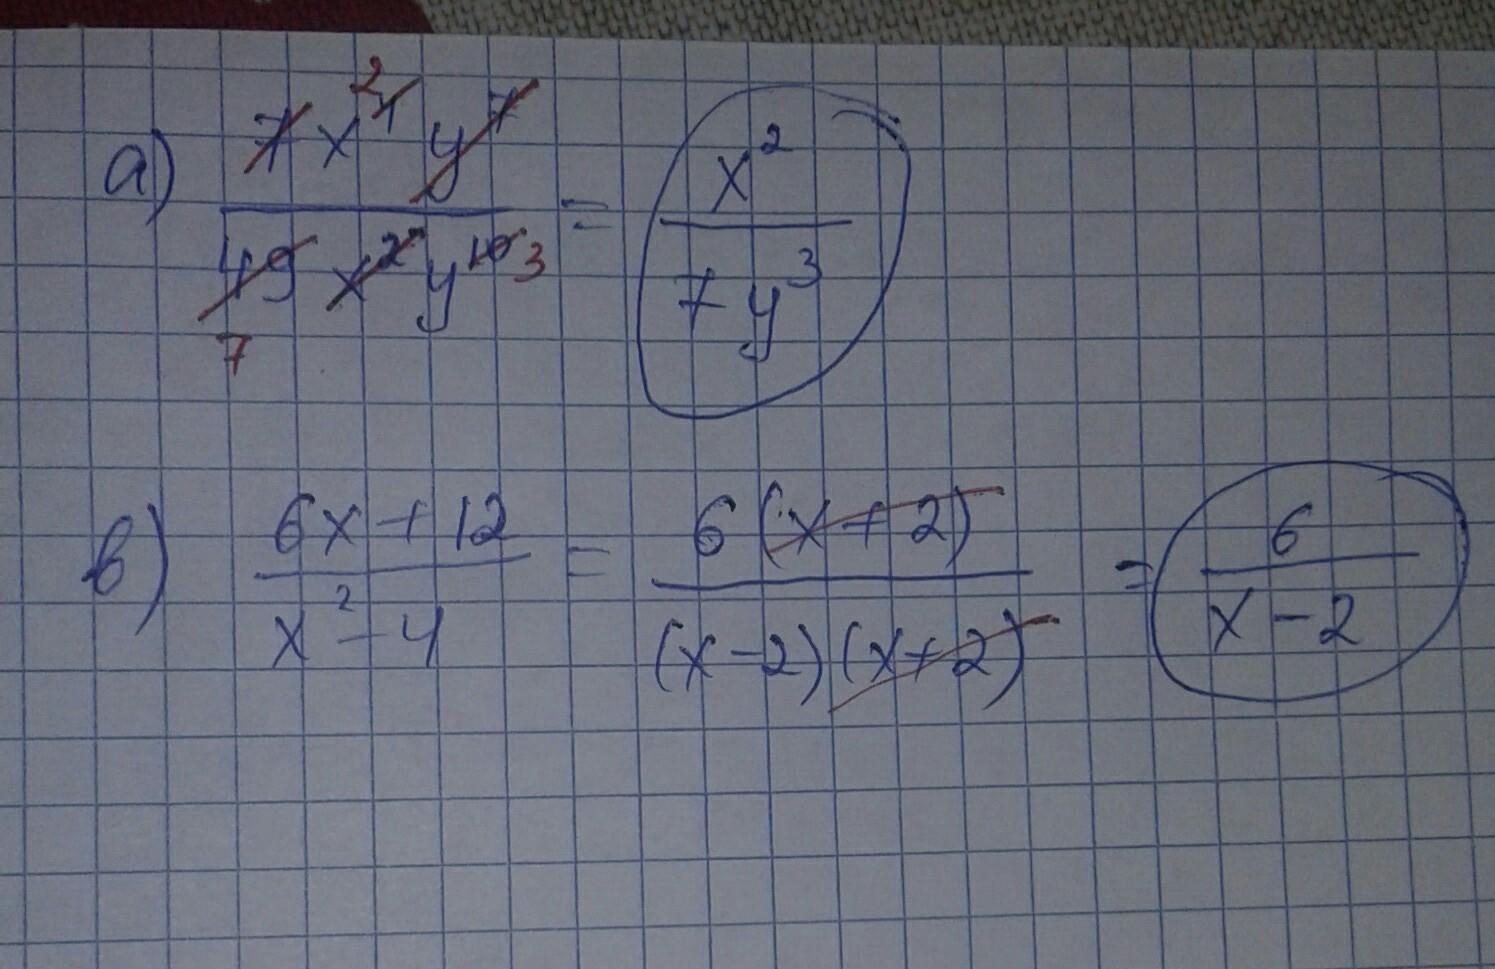 a) 7x⁴y⁷ / 49x²y¹⁰ = x² / 7y³
2
3
7
в) 6x + 12 / x² - 4 = 6(x + 2) / (x - 2)(x + 2) = 6 / x - 2